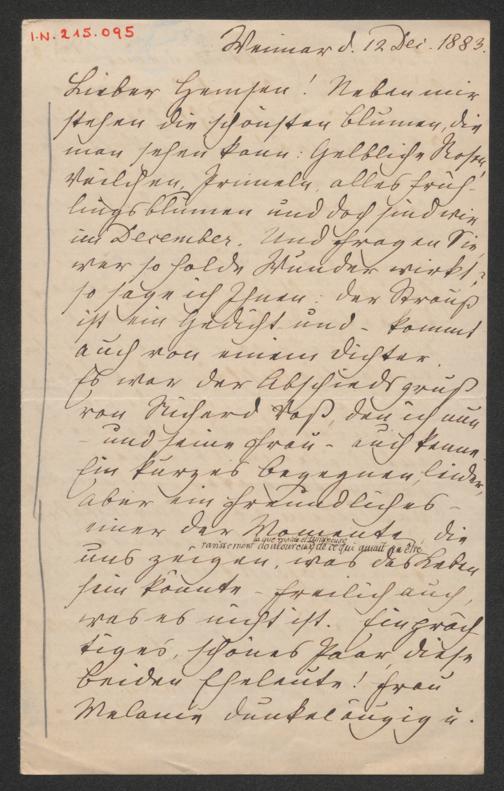 I.N. 215.095
Weimar d. 12 Dec. 1883.
Lieber Hemsen! Neben mir
stehen die schönsten Blumen, die
man sehen kann: Gelbliche Rosen,
Veilchen, Primeln, alles Früh-
lingsblumen und doch sind wir
im December. Und fragen Sie,
wer so holde Wunder wirkt,
so sage ich Ihnen: der Strauß
ist ein Gedicht und - kommt
auch von einem Dichter.
Es war der Abschiedsgruß
von Richard Voß, den ich nun
- und seine Frau - auch kenne.
Ein kurzes Begegnen, leider,
aber ein freundliches -
einer der Momente, die
uns zeigen, was das Leben
sein könnte - freilich auch,
was es nicht ist. Ein präch
tiges, schönes Paar, diese
beiden Eheleute! Frau
Melanie dunkeläugig u.